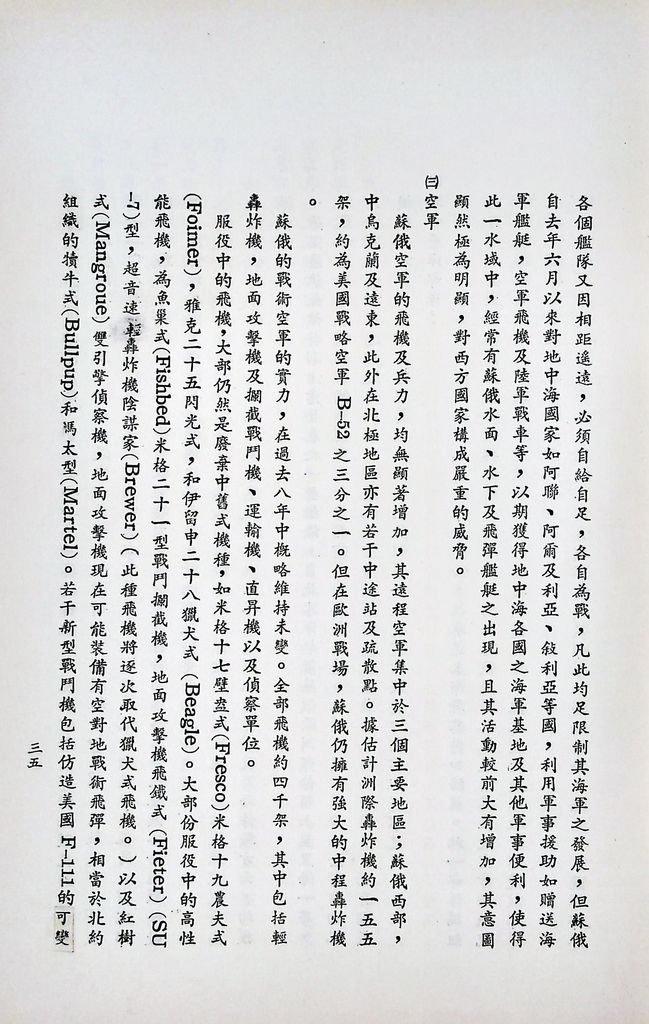 各個艦隊又因相距遙遠，必須自給自足，各自為戰，凡此均足限制其海軍之發展，但蘇俄
自去年六月以來對地中海國家如阿聯、阿爾及利亞、敘利亞等國，利用軍事援助如贈送海
軍艦艇，空軍飛機及陸軍戰車等，以期獲得地中海各國之海軍基地及其他軍事便利，使得
此一水域中，經常有蘇俄水面、水下及飛彈艦艇之出現，且其活動較前大有增加，其意圖
顯然極為明顯，對西方國家構成嚴重的威脅。
㈢空軍
蘇俄空軍的飛機及兵力，均無顯著增加，其遠程空軍集中於三個主要地區；蘇俄西部，
中烏克蘭及遠東，此外在北極地區亦有若干中途站及疏散點。據估計洲際轟炸機約一五五
架，約為美國戰略空軍 B-52 之三分之一。但在歐洲戰場，蘇俄仍擁有強大的中程轟炸機
。
蘇俄的戰術空軍的實力，在過去八年中概略維持未變。全部飛機約四千架，其中包括輕
轟炸機，地面攻擊機及攔截戰鬥機、運輸機、直昇機以及偵察單位。
服役中的飛機，大部仍然是廢棄中舊式機種，如米格十七壁盔式(Fresco)米格十九農夫式
(Foimer)，雅克二十五閃光式，和伊留申二十八獵犬式 (Beagle)。大部份服役中的高性
能飛機，為魚巢式(Fishbed)米格二十一型戰鬥攔截機，地面攻擊機飛鐵式 (Fieter) (SU
-7)型，超音速輕轟炸機陰謀家(Brewer)（此種飛機將逐次取代獵犬式飛機。）以及紅樹
式(Mangroue)雙引擎偵察機，地面攻擊機現在可能裝備有空對地戰術飛彈，相當於北約
組織的犢牛式(Bullpup)和馮太型(Martel)。若干新型戰鬥機包括仿造美國 F-111的可變
三五